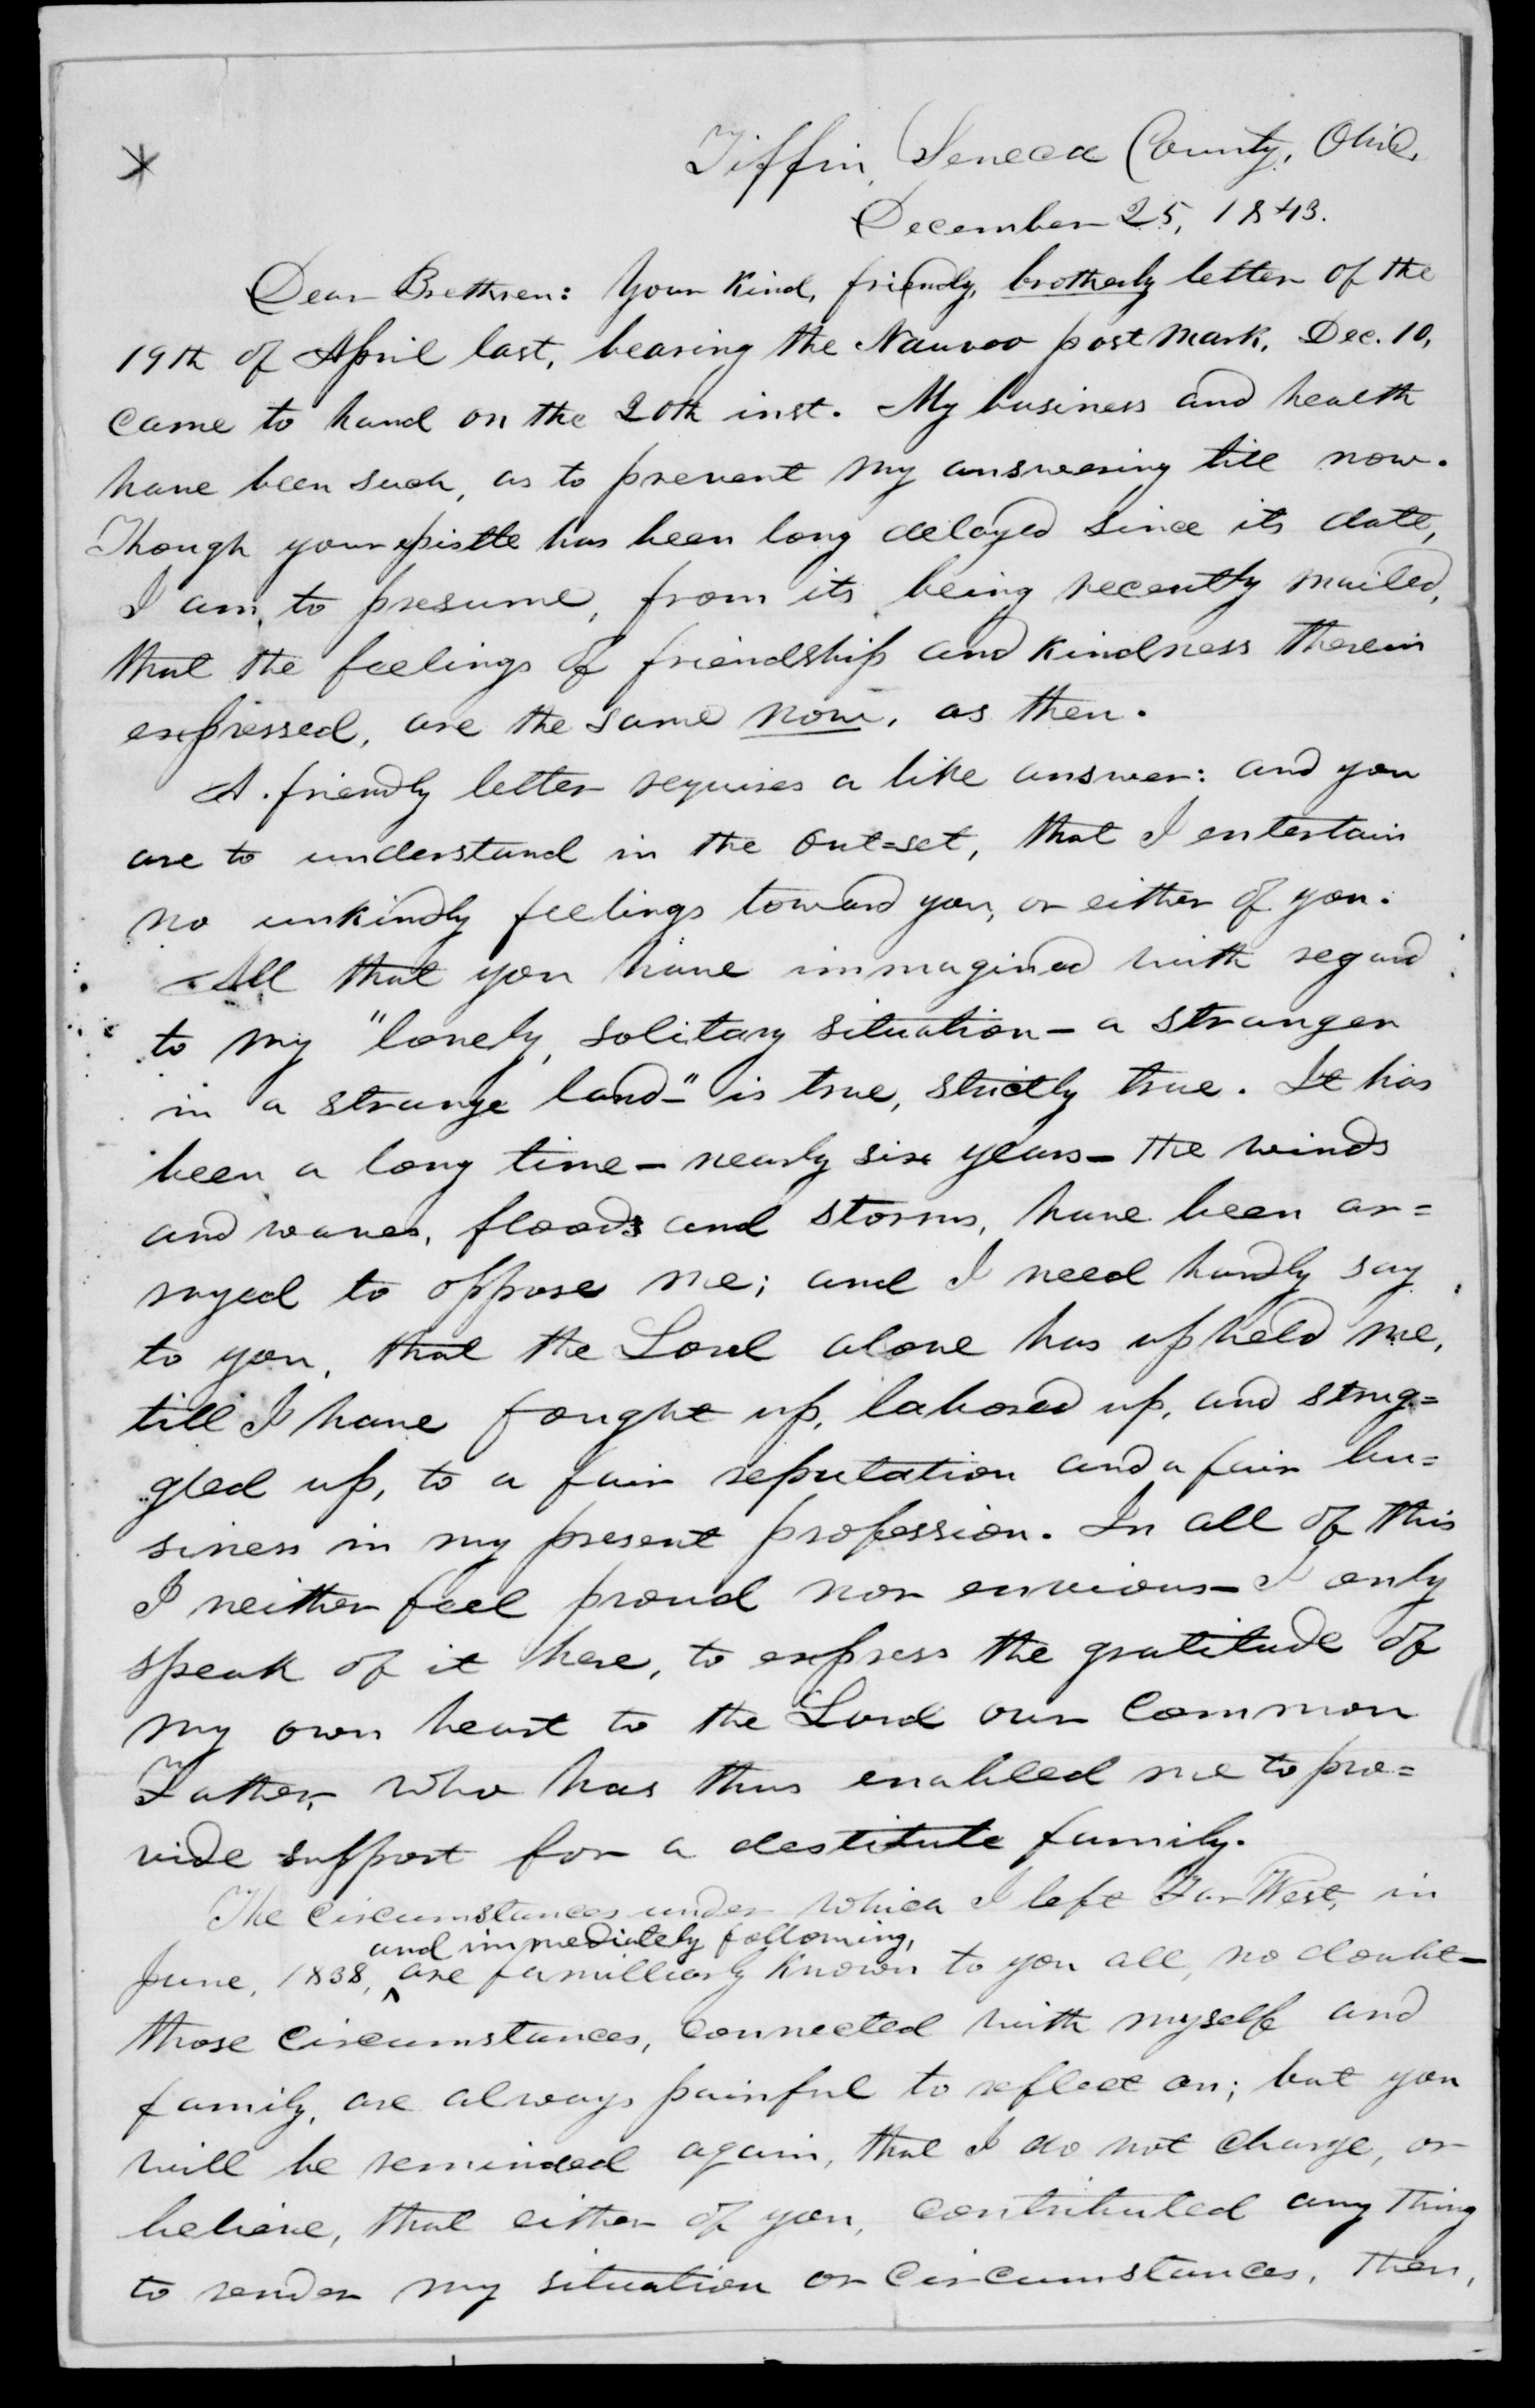 Tiffin, Seneca County, Ohio,
December 25, 1843.
Dear Brethren: Your kind, friendly, brotherly letter of the
19th of April last, bearing the Nauvoo post mark, Dec. 10,
came to hand on the 20th inst. My business and health
have been such, as to prevent my answering till now.
Though your epistle has been long delayed since its date,
I am, to presume, from its being recently mailed,
that the feelings of friendship and kindness therein
expressed, are the same now, as then.
A friendly letter requires a like answer: and you
are to understand in the out=set, that I entertain
no unkindly feelings toward you, or either of you.
All that you have immagined with regard
to my "lonely, solitary situation — a stranger
in a strange land—" is true, strictly true. It has
been a long time — nearly six years — the winds
and waves, floods and storms, have been ar=
rayed to oppose me; and I need hardly say
to you, that the Lord alone has upheld me,
till I have fought up, labored up, and strug=
gled up, to a fair reputation and a fair bu=
siness in my present profession. In all of this
I neither feel proud nor envious — I only
speak of it here, to express the gratitude of
my own heart to the Lord our common
Father, who has thus enabled me to pro=
vide support for a destitute family.
The circumstances under which I left Far West, in
and immediately following,
June, 1838, ^ are familliarly known to you all, no doubt —
those circumstances, connected with myself and
family, are always painful to reflect on; but you
will be reminded again, that I do not charge, or
believe, that either of you, contributed any thing
to render my situation or circumstances, then,